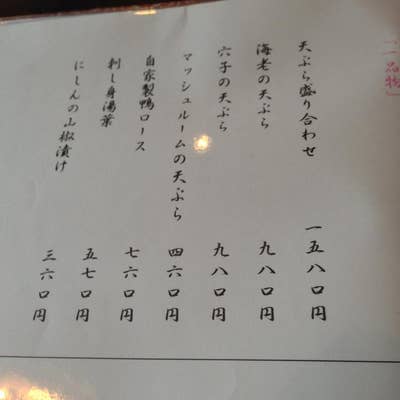 【一品物】
天ぷら盛り合わせ 一五八〇円
海老の天ぷら 九八〇円
穴子の天ぷら 九八〇円
マッシュルームの天ぷら 四六〇円
自家製鴨ロース 七六〇円
刺し身湯葉 五七〇円
にしんの山椒漬け 三六〇円